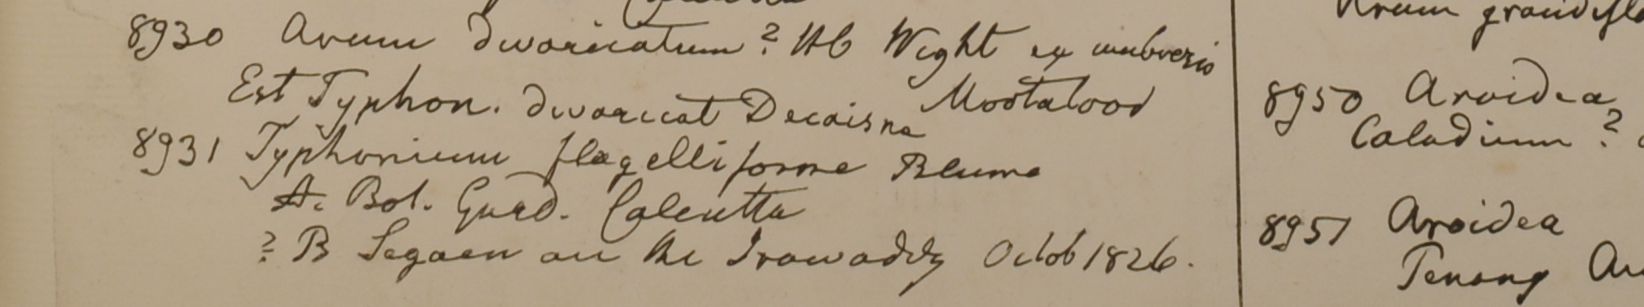 8930 Arum divaricatum? Hb Wight ex umbrosis
Mootaloor
Est Typhon. divaricat Decaisne
8931 Typhonium flagelliforme Blume
A. Bot. Gard. Calcutta
? B Segaen on the Irawaddy Octob 1826.
8950 Aroidea
Caladium?
8951 Aroidea
Penang